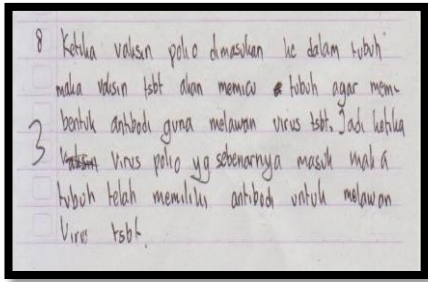 8 Ketika vaksin polio dimasukan ke dalam tubuh
maka vaksin tsbt akan memicu tubuh agar mem-
bentuk antibodi guna melawan virus tsbt. Jadi ketika
3 virus polio yg sebenarnya masuk maka
tubuh telah memiliki antibodi untuk melawan
virus tsbt.